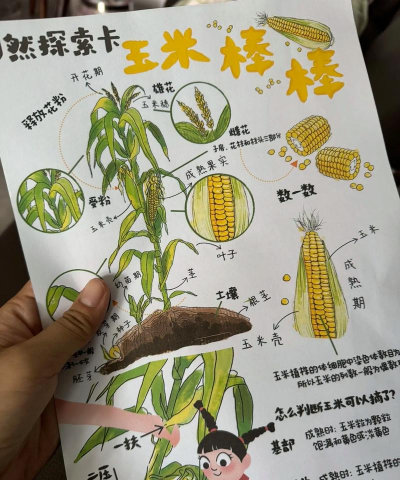 然探索卡
玉米棒棒
开花期
雄花
玉米穗
释放花粉
雌花
子房、花柱和柱头三部分
成熟果实
受粉
玉米壳
数一数
叶子
玉米
成熟期
幼苗期
茎
土壤
根茎
种子
胚芽
玉米壳
玉米植株的体细胞中染色体数目为
所以玉米的列数一般为偶数
怎么判断玉米可以摘了?
基部
成熟时:玉米粒为颗粒
饱满和黄色或淡黄色
一扶
成熟时:玉米植株的